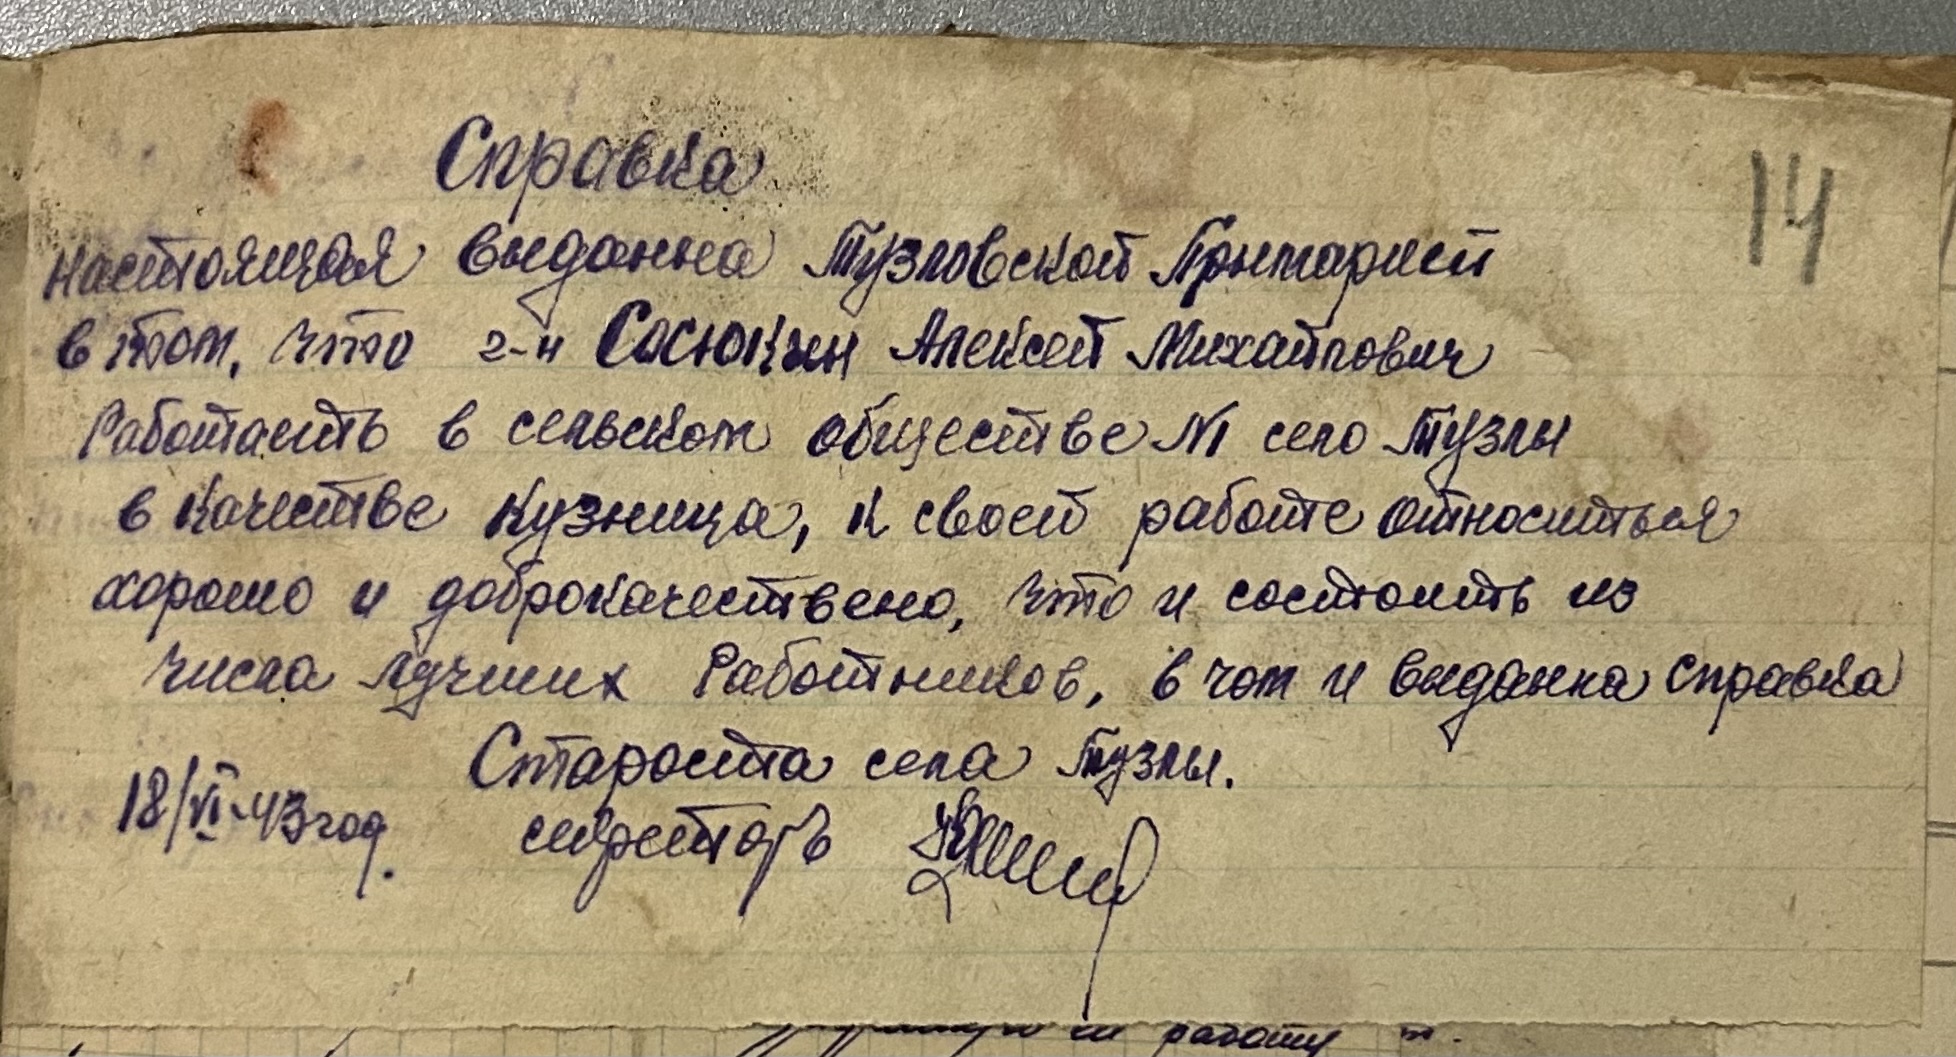 Справка
14
настоящая выданна Тузловской Примарией
в том, что г-н Сосюкин Алексей Михайлович
Работаить в сельском обществе №1 село Тузлы
в качестве кузница, к своей работе относиться
хорошо и доброкачествено, что и состоить из
числа лучших Работников, в чом и выданна справка
Староста села Тузлы.
18/VI-43 год.
секретарь
работу